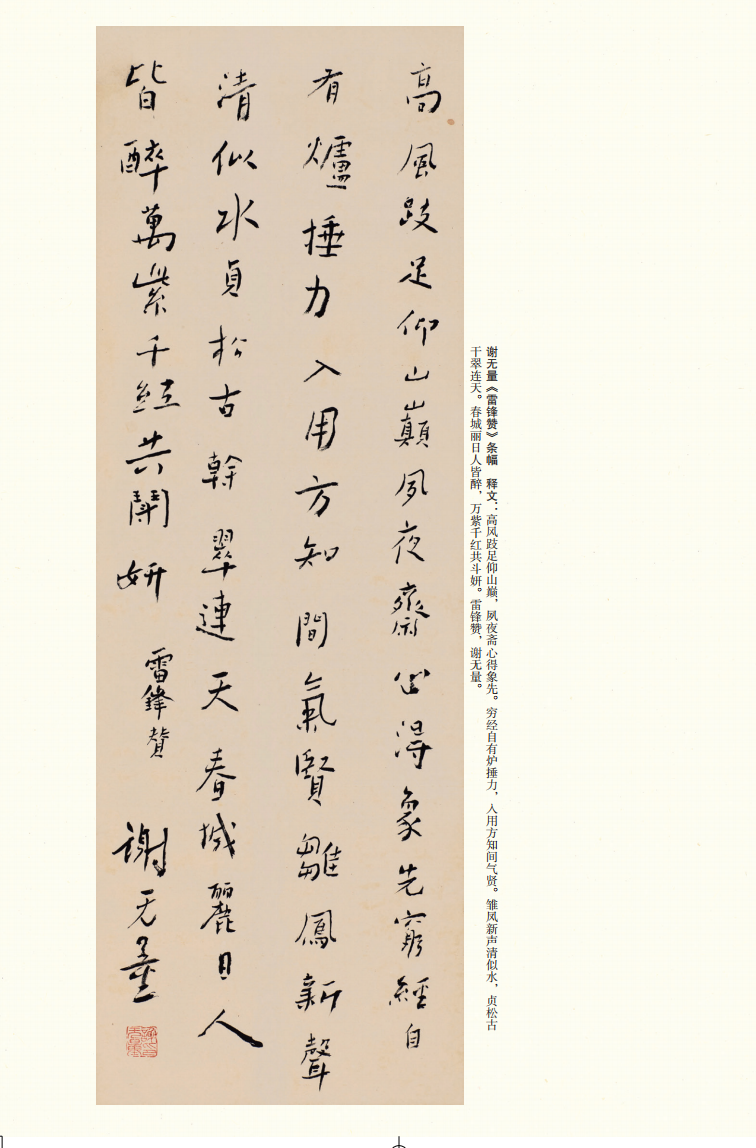 高風跂足仰山巔夙夜齋心得象先窮經自
有爐捶力入用方知間氣賢雛鳳新聲
清似水貞松古榦翠連天春城麗日人
皆醉萬紫千紅共鬭妍
雷鋒贊
謝无量
谢无量《雷锋赞》条幅　释文：高风跂足仰山巅，夙夜斋心得象先。穷经自有炉捶力，入用方知间气贤。雏凤新声清似水，贞松古
干翠连天。春城丽日人皆醉，万紫千红共斗妍。雷锋赞，谢无量。